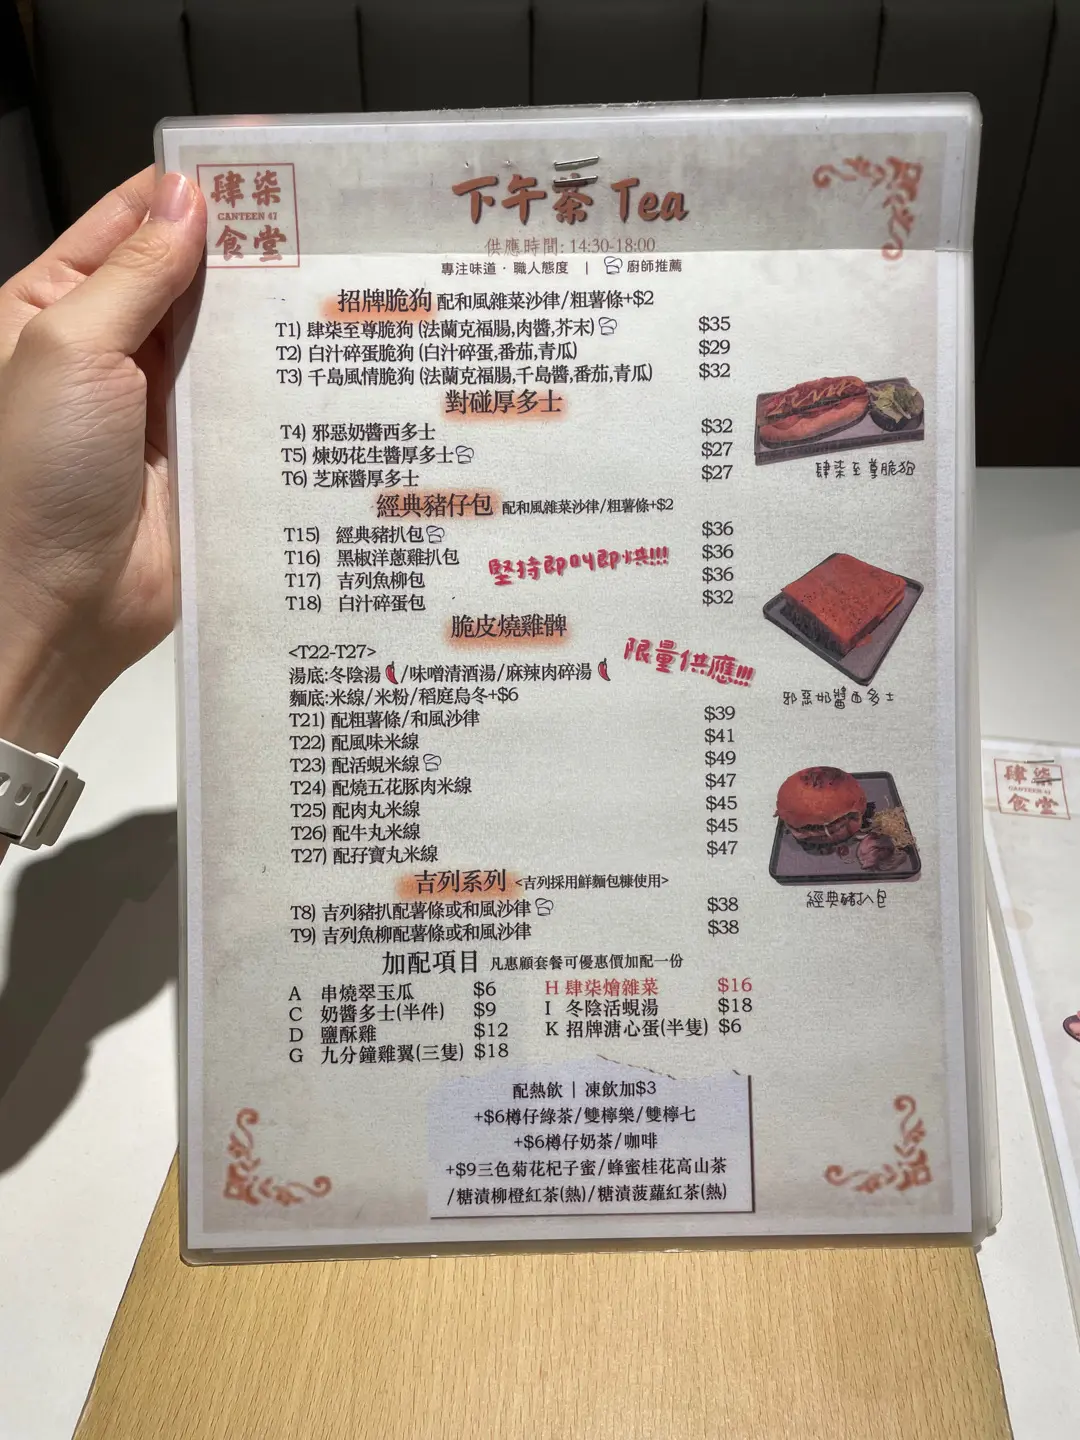 肆柒
CANTEEN 47
食堂
下午茶 Tea
供應時間: 14:30-18:00
專注味道·職人態度 | 廚師推薦
招牌脆狗 配和風雜菜沙律/粗薯條+$2
T1) 肆柒至尊脆狗 (法蘭克福腸,肉醬,芥末) $35
T2) 白汁碎蛋脆狗 (白汁碎蛋,番茄,青瓜) $29
T3) 千島風情脆狗 (法蘭克福腸,千島醬,番茄,青瓜) $32
對碰厚多士
T4) 邪惡奶醬西多士 $32
T5) 煉奶花生醬厚多士 $27
T6) 芝麻醬厚多士 $27
肆柒至尊脆狗
經典豬仔包 配和風雜菜沙律/粗薯條+$2
T15) 經典豬扒包 $36
T16) 黑椒洋蔥雞扒包 $36
T17) 吉列魚柳包 $36
T18) 白汁碎蛋包 $32
堅持即叫即烘!!!
脆皮燒雞髀
限量供應!!!
<T22-T27>
湯底:冬陰湯/味噌清酒湯/麻辣肉碎湯
麵底:米線/米粉/稻庭烏冬+$6
邪惡奶醬西多士
T21) 配粗薯條/和風沙律 $39
T22) 配風味米線 $41
T23) 配活蜆米線 $49
T24) 配燒五花豚肉米線 $47
T25) 配肉丸米線 $45
T26) 配牛丸米線 $45
T27) 配孖寶丸米線 $47
吉列系列 <吉列採用鮮麵包糠使用>
經典豬扒包
T8) 吉列豬扒配薯條或和風沙律 $38
T9) 吉列魚柳配薯條或和風沙律 $38
加配項目 凡惠顧套餐可優惠價加配一份
A 串燒翠玉瓜 $6
C 奶醬多士(半件) $9
D 鹽酥雞 $12
G 九分鐘雞翼(三隻) $18
H 肆柒燴雜菜 $16
I 冬陰活蜆湯 $18
K 招牌溏心蛋(半隻) $6
配熱飲 | 凍飲加$3
+$6樽仔綠茶/雙檸樂/雙檸七
+$6樽仔奶茶/咖啡
+$9三色菊花杞子蜜/蜂蜜桂花高山茶
/糖漬柳橙紅茶(熱)/糖漬菠蘿紅茶(熱)
肆柒
CANTEEN 47
食堂